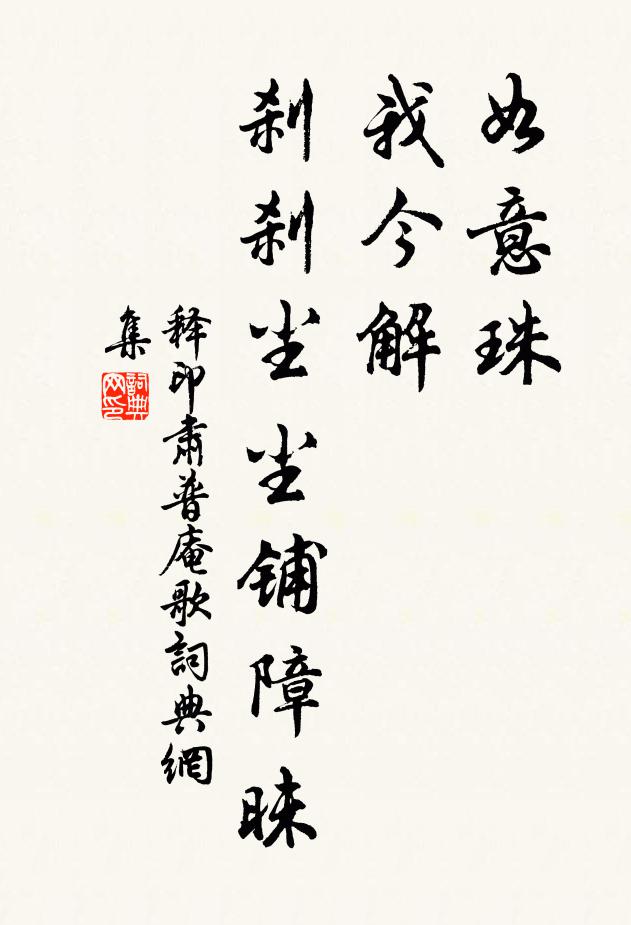 如意珠
我今解
刹刹尘尘铺障睐
释印肃普庵歌詞典網
集
詞典
网印